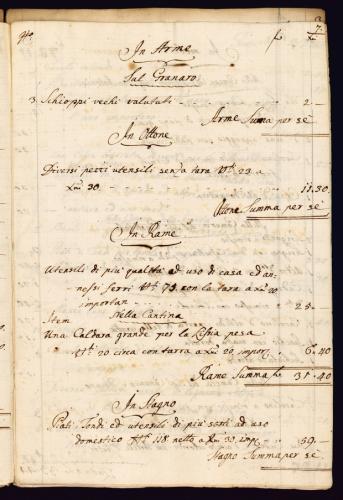 In Arme
Sul Granaro
3 Schioppi vechi valutati 2 -
Arme Summa per sè
In Ottone
Diversi pezzi utensili senza tara 23 a
30 - 11.30
Ottone Summa per sè
In Rame
Utensili di più qualità ad uso di casa ed an-
nessi ferri 75 non la tara a 20
importan - 25 -
Item Nella Cantina
Una Caldara grande per la Lisiva pesa
20 circa con tarra a 20 import. 6.40
Rame Summa 31.40
In Stagno
Piati Tondi ed utensili di più sorti ad uso
domestico 118 netto a 30 imp. 59 -
Stagno Summa per se